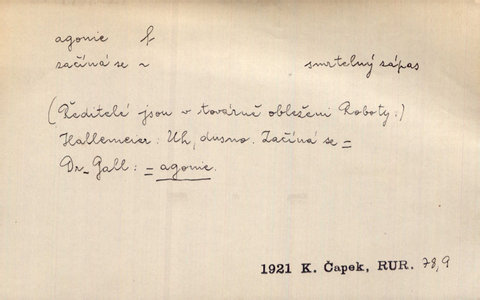 agonie f
začíná se ~ smrtelný zápas
(Ředitelé jsou v továrně obleženi Roboty:)
Hallemeier: Uh, dusno. Začíná se =
Dr. Gall: = agonie.
1921 K. Čapek, RUR. 78,9